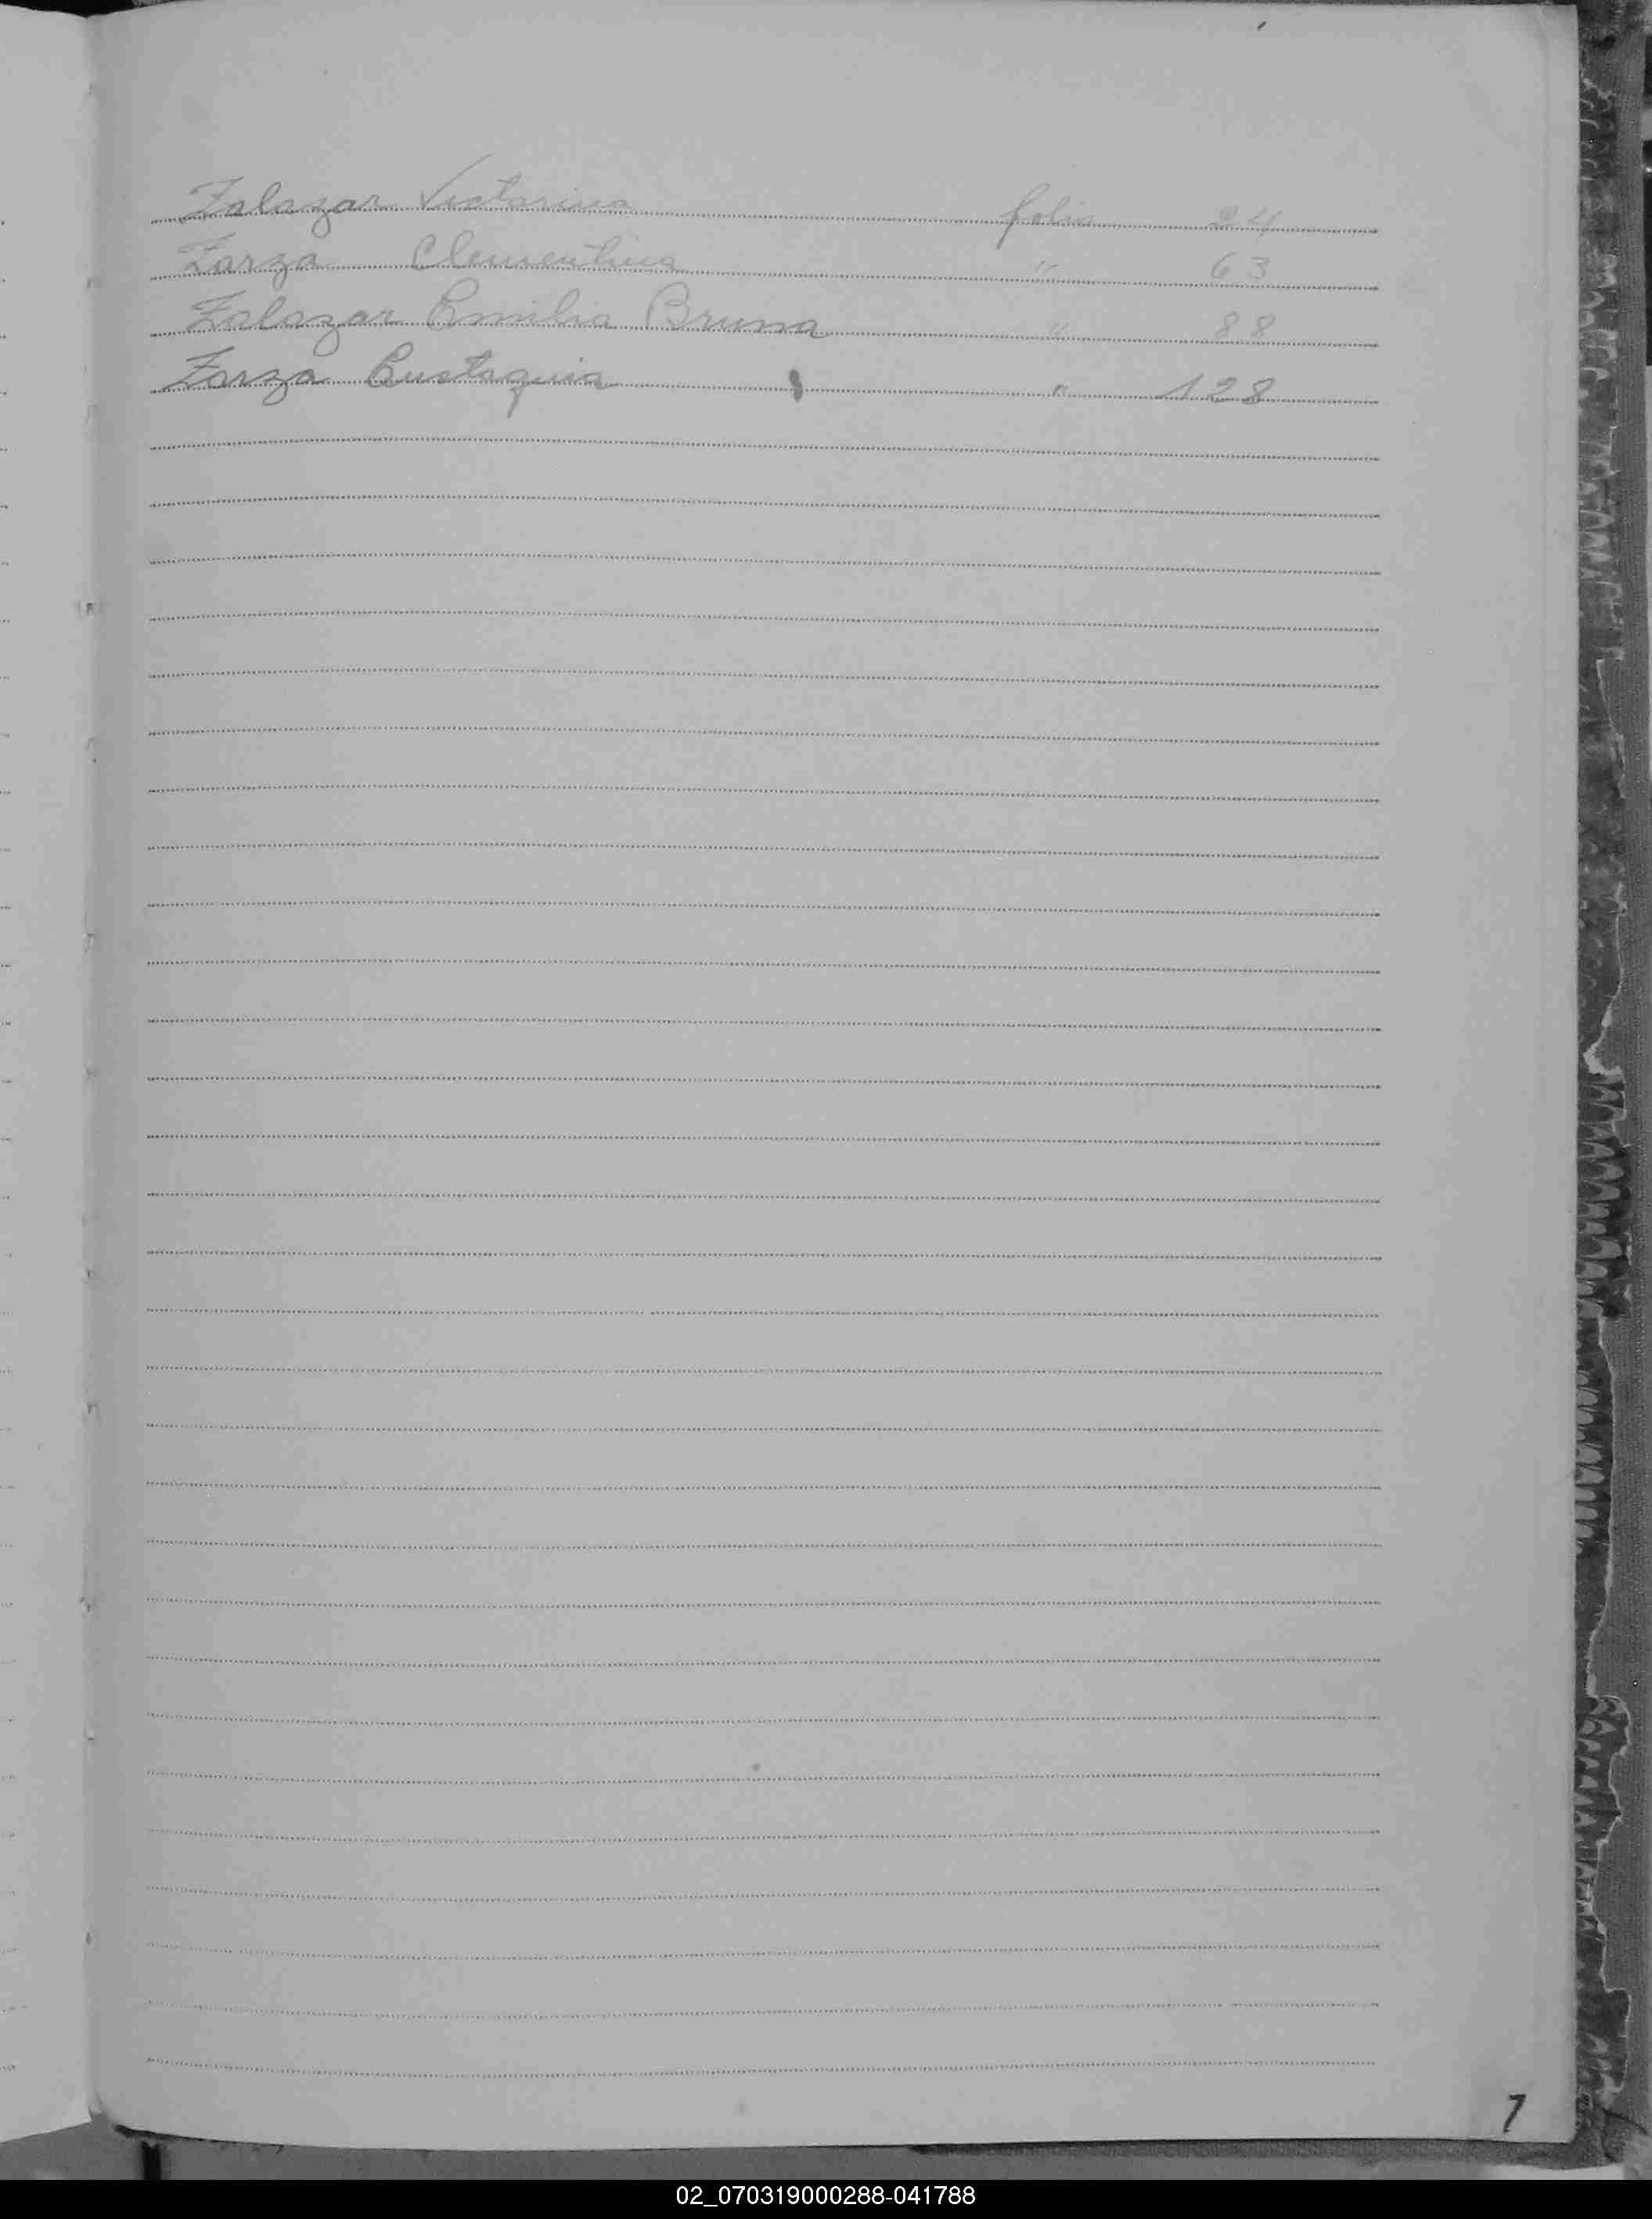 Zalazar Victorina folio 24
Zarza Clementina " 63
Zalazar Emilia Bruna " 88
Zarza Eustaquia " 128
7
02_070319000288-041788